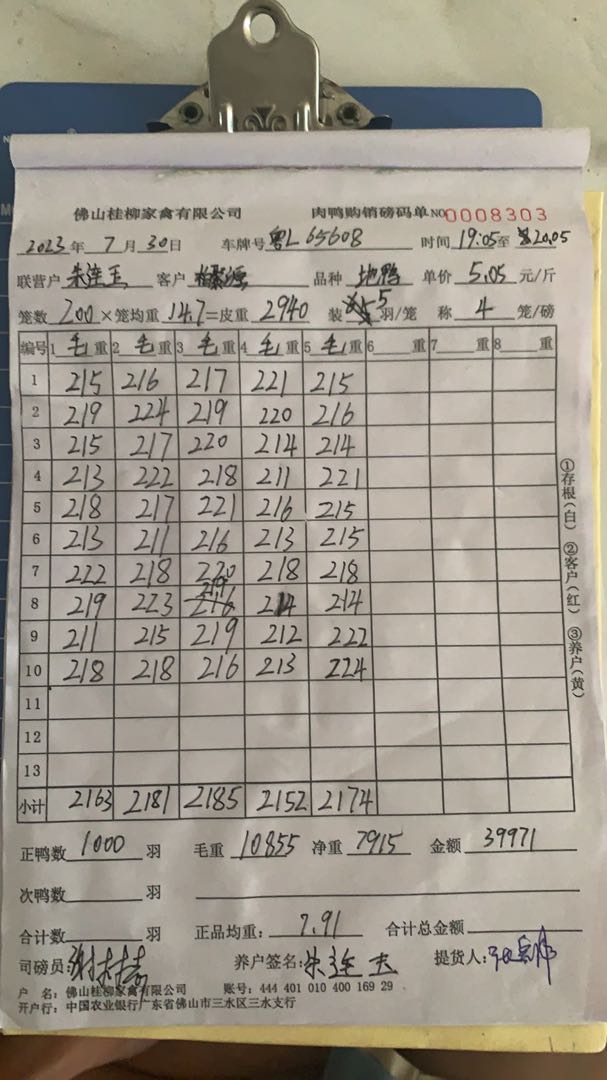 佛山桂柳家禽有限公司 肉鸭购销磅码单 NO 0008303
2023年 7月 30日 车牌号 粤L 65608 时间 19:05 至 20.05
联营户 朱连玉 客户 品种 地鸭 单价 5.05 元/斤
笼数 200 ×笼均重 14.7 =皮重 2940 装 5 羽/笼 称 4 笼/磅
编号 1 毛 重 2 毛 重 3 毛 重 4 毛 重 5 毛 重 6 重 7 重 8 重
1 215 216 217 221 215
2 219 224 219 220 216
3 215 217 220 214 214
4 213 222 218 211 221
5 218 217 221 216 215
6 213 211 216 213 215
7 222 218 220 218 218
8 219 223 219 214 214
9 211 215 219 212 222
10 218 218 216 213 224
11
12
13
小计 2163 2181 2185 2152 2174
①存根(白) ②客户(红) ③养户(黄)
正鸭数 1000 羽 毛重 10855 净重 7915 金额 39971
次鸭数 羽
合计数 羽 正品均重: 7.91 合计总金额
司磅员: 养户签名: 朱连玉 提货人:
户 名: 佛山桂柳家禽有限公司 账号: 444 401 010 400 169 29
开户行: 中国农业银行广东省佛山市三水区三水支行